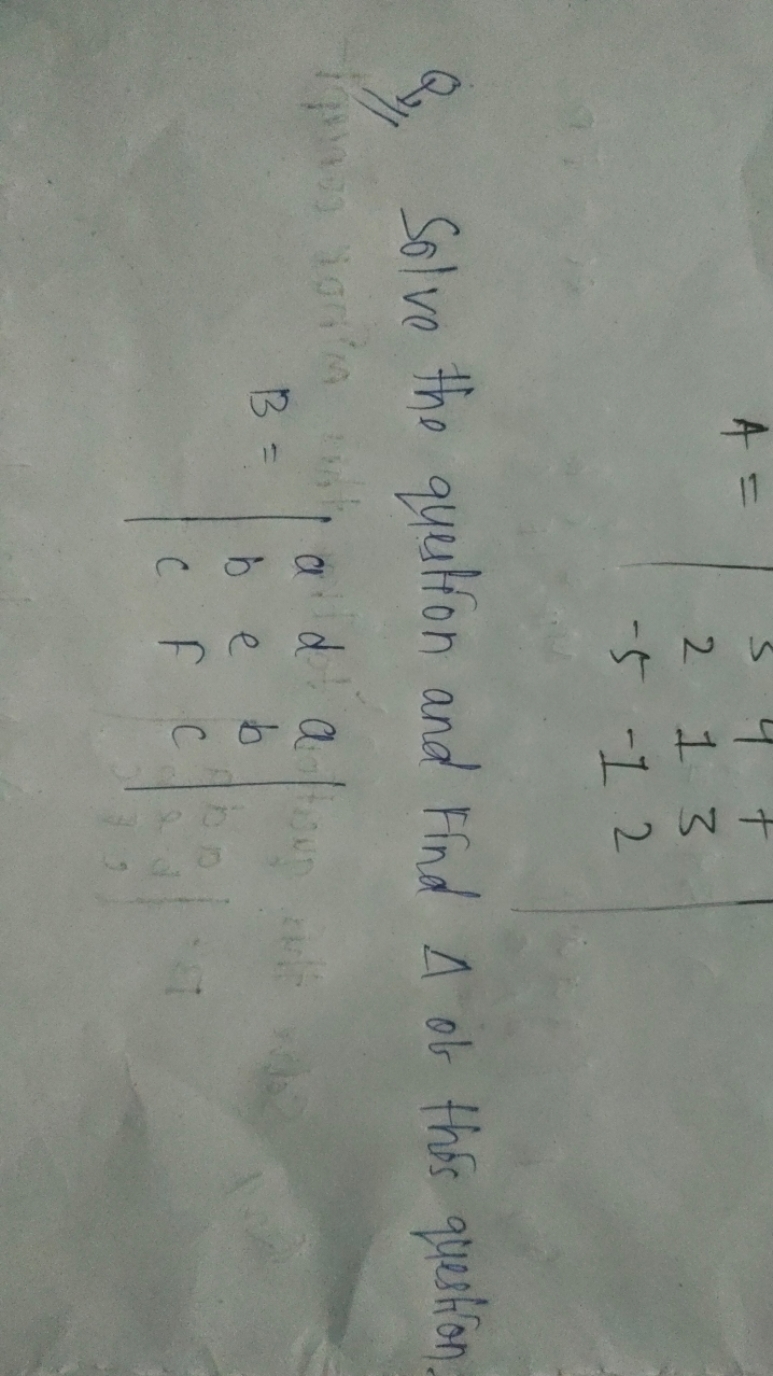 A =
4
2 1 3
-5 -1 2
Q// Solve the question and Find Δ of this question.
B =
a d a
b e b
c f c